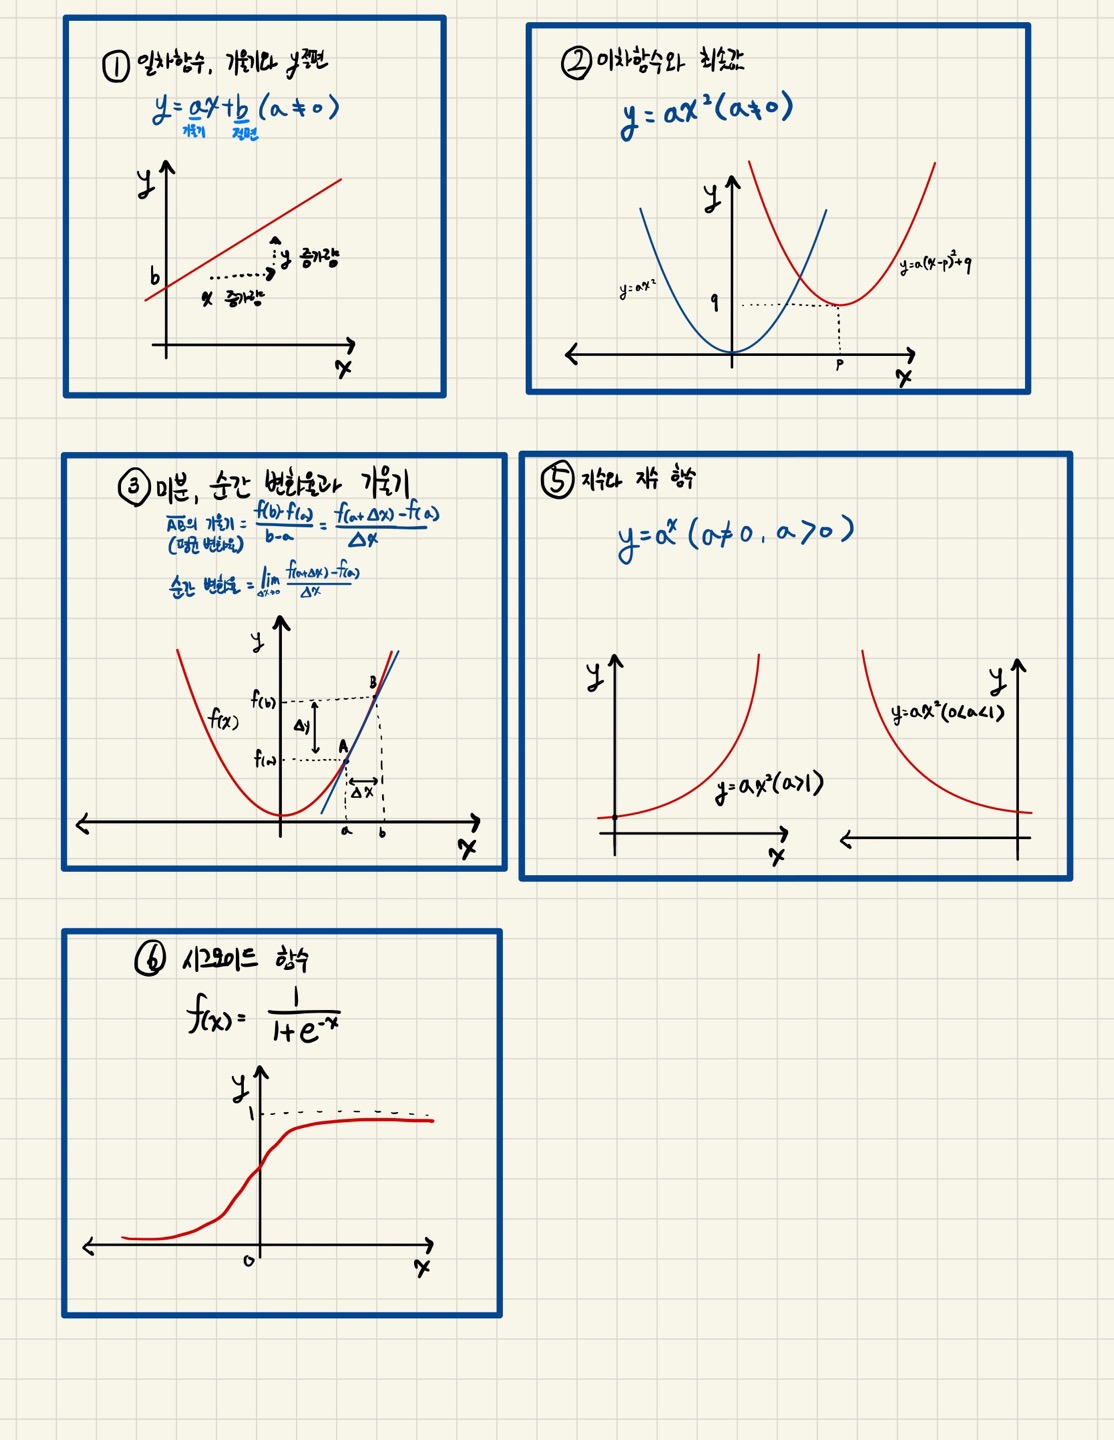 ① 일차함수, 기울기와 y절편
y = ax + b (a ≠ 0)
기울기 절편
y
b
y 증가량
x 증가량
x
② 이차함수와 최솟값
y = ax² (a ≠ 0)
y
y=ax²
y=a(x-p)²+q
q
p
x
③ 미분, 순간 변화율과 기울기
AB의 기울기 = f(b)-f(a) / b-a = f(a+Δx)-f(a) / Δx
(평균 변화율)
순간 변화율 = lim Δx→0 f(a+Δx)-f(a) / Δx
y
f(b)
B
f(x)
Δy
f(a)
A
Δx
a b
x
⑤ 지수와 지수 함수
y = aˣ (a ≠ 0, a > 0)
y
y=ax²(a>1)
x
y
y=ax²(0<a<1)
⑥ 시그모이드 함수
f(x) = 1 / 1+e⁻ˣ
y
1
0
x